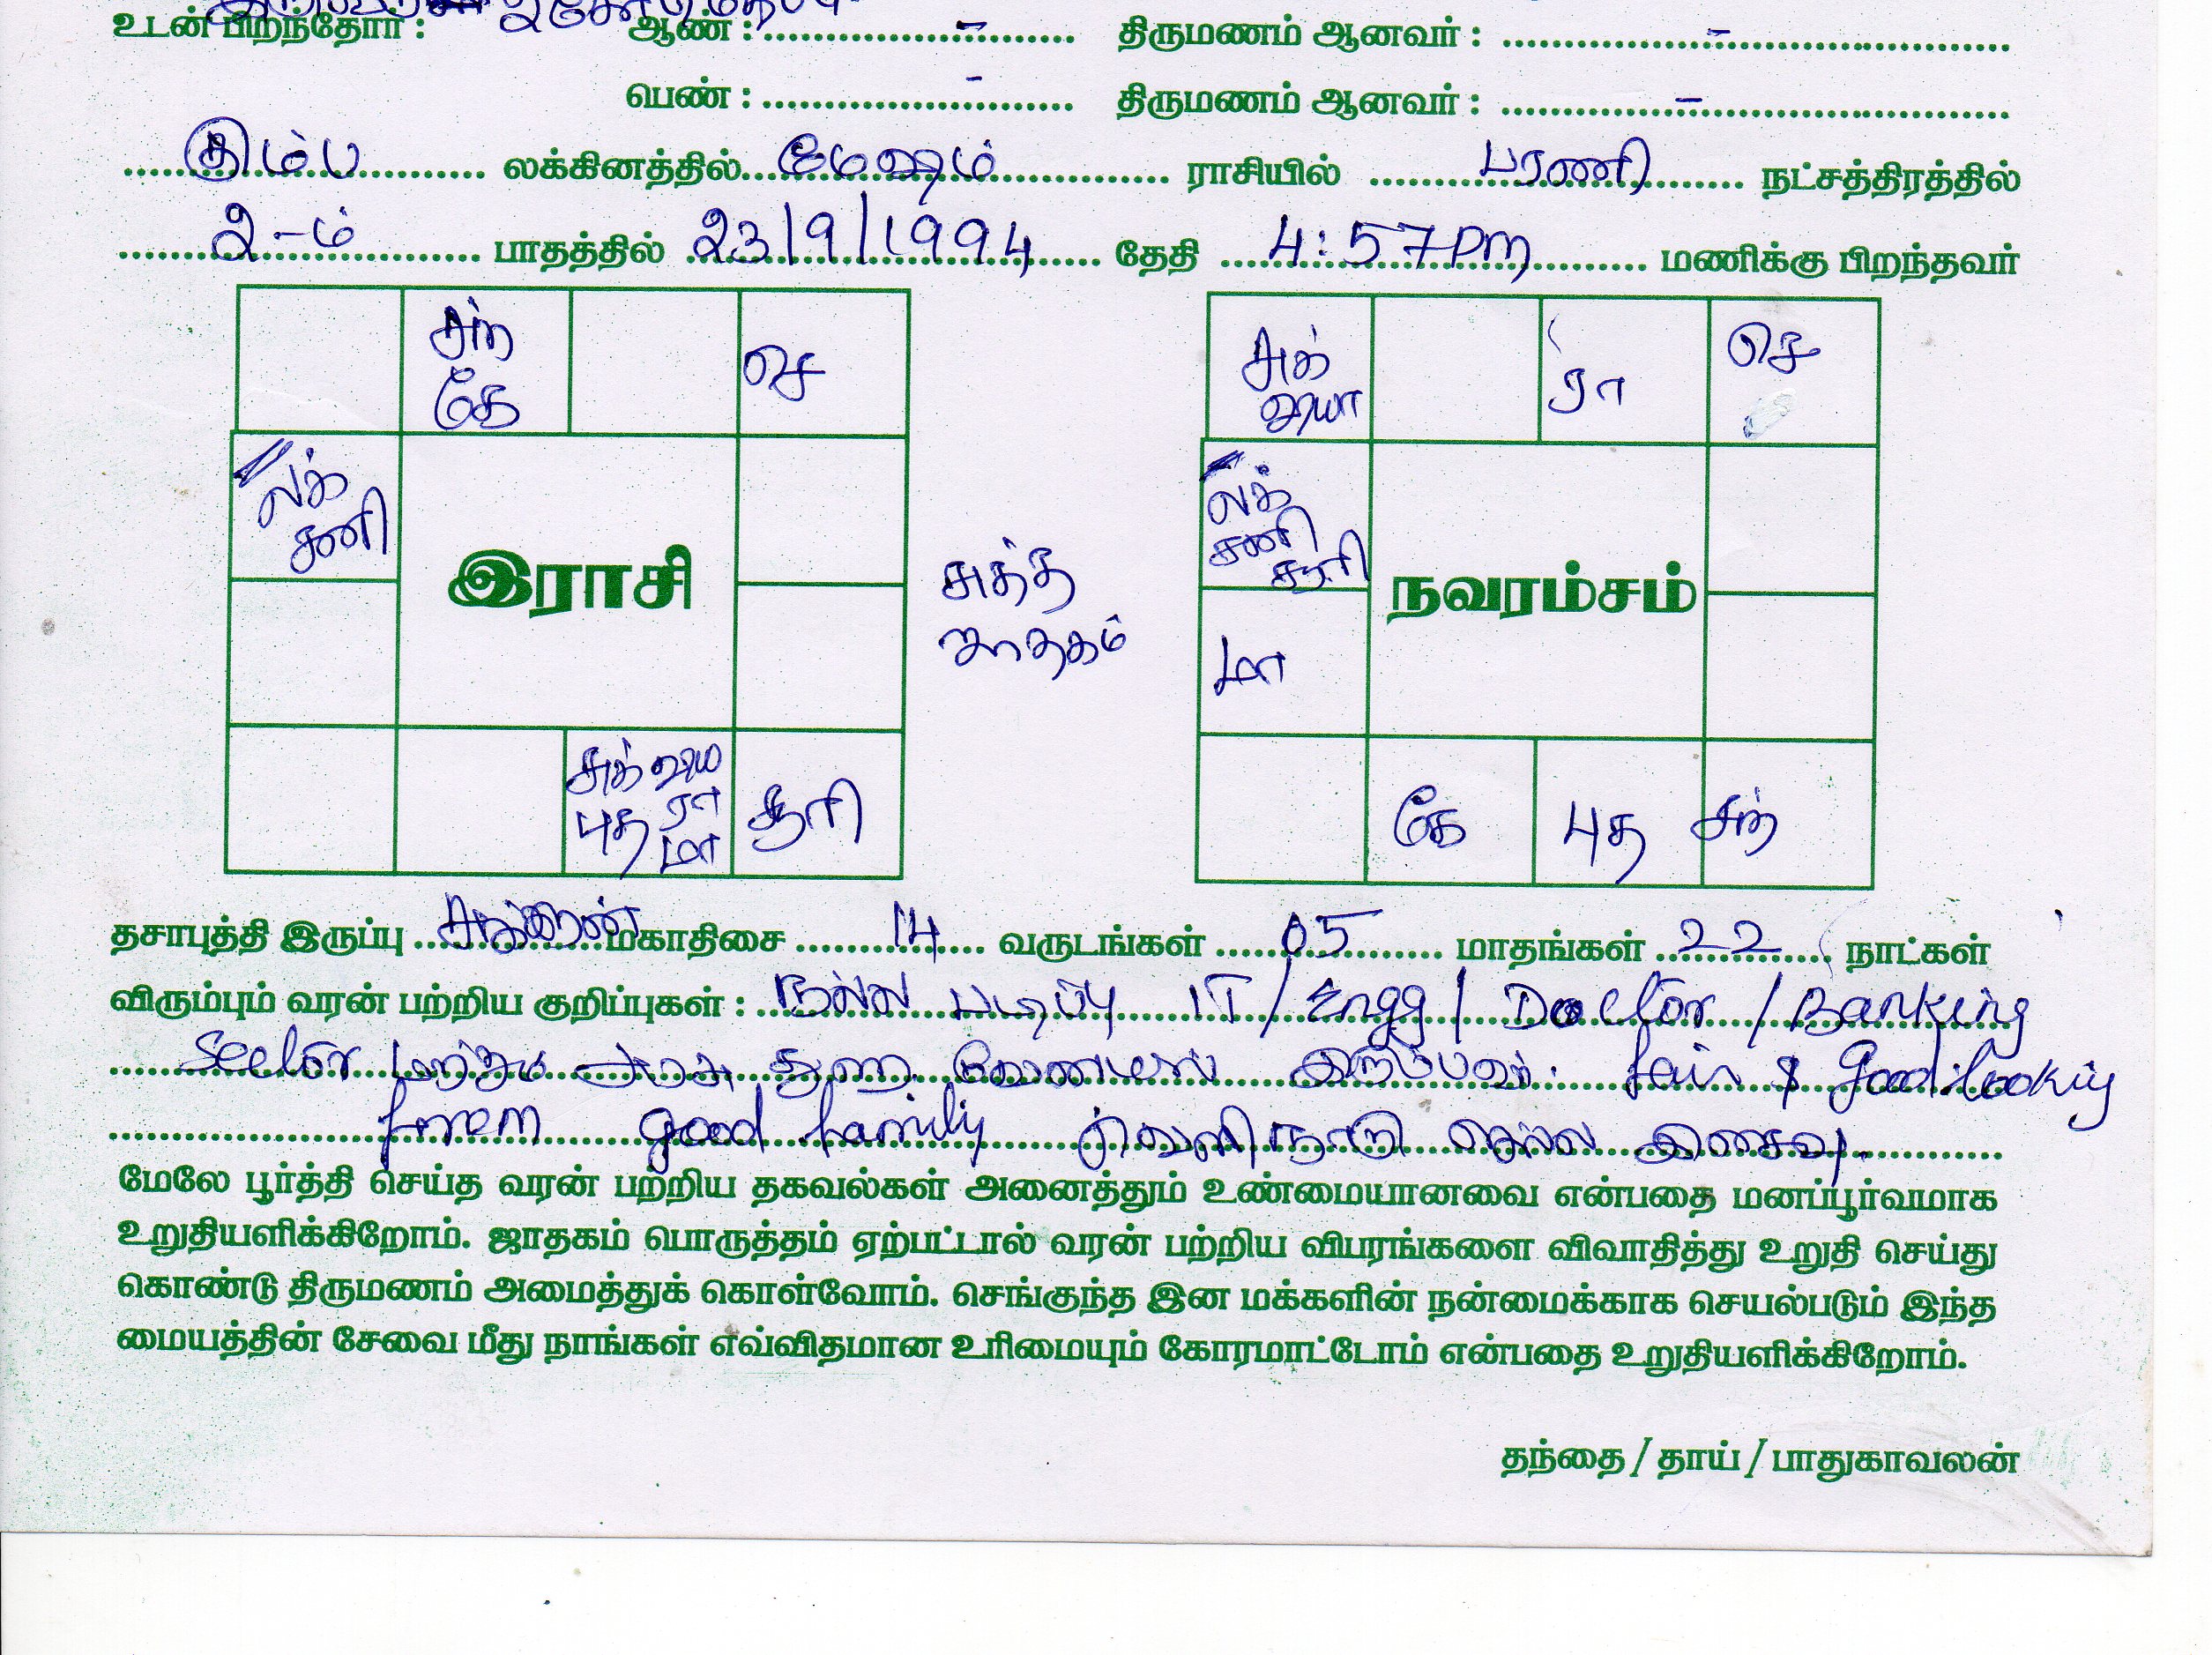 உடன் பிறந்தோர் : ஆண் : - திருமணம் ஆனவர் : -
பெண் : - திருமணம் ஆனவர் : -
கும்ப லக்கினத்தில் மேஷம் ராசியில் பரணி நட்சத்திரத்தில்
2-ம் பாதத்தில் 23/9/1994 தேதி 4:57 PM மணிக்கு பிறந்தவர்
சந் செ சுக் ரா செ
கே வியா
லக் லக்
சனி சனி
சூரி
இராசி சுத்த நவரம்சம்
ஜாதகம் மா
சுக் விய சூரி கே புத சந்
ரா
புத மா
தசாபுத்தி இருப்பு சுக்கிரன் மகாதிசை 14 வருடங்கள் 05 மாதங்கள் 22 நாட்கள்
விரும்பும் வரன் பற்றிய குறிப்புகள் : நல்ல படிப்பு IT / Engg / Doctor / Banking
Sector மற்றும் அரசு துறை fair & Good looking
from good family வெளிநாடு செல்ல இசைவு.
மேலே பூர்த்தி செய்த வரன் பற்றிய தகவல்கள் அனைத்தும் உண்மையானவை என்பதை மனப்பூர்வமாக
உறுதியளிக்கிறோம். ஜாதகம் பொருத்தம் ஏற்பட்டால் வரன் பற்றிய விபரங்களை விவாதித்து உறுதி செய்து
கொண்டு திருமணம் அமைத்துக் கொள்வோம். செங்குந்த இன மக்களின் நன்மைக்காக செயல்படும் இந்த
மையத்தின் சேவை மீது நாங்கள் எவ்விதமான உரிமையும் கோரமாட்டோம் என்பதை உறுதியளிக்கிறோம்.
தந்தை / தாய் / பாதுகாவலன்